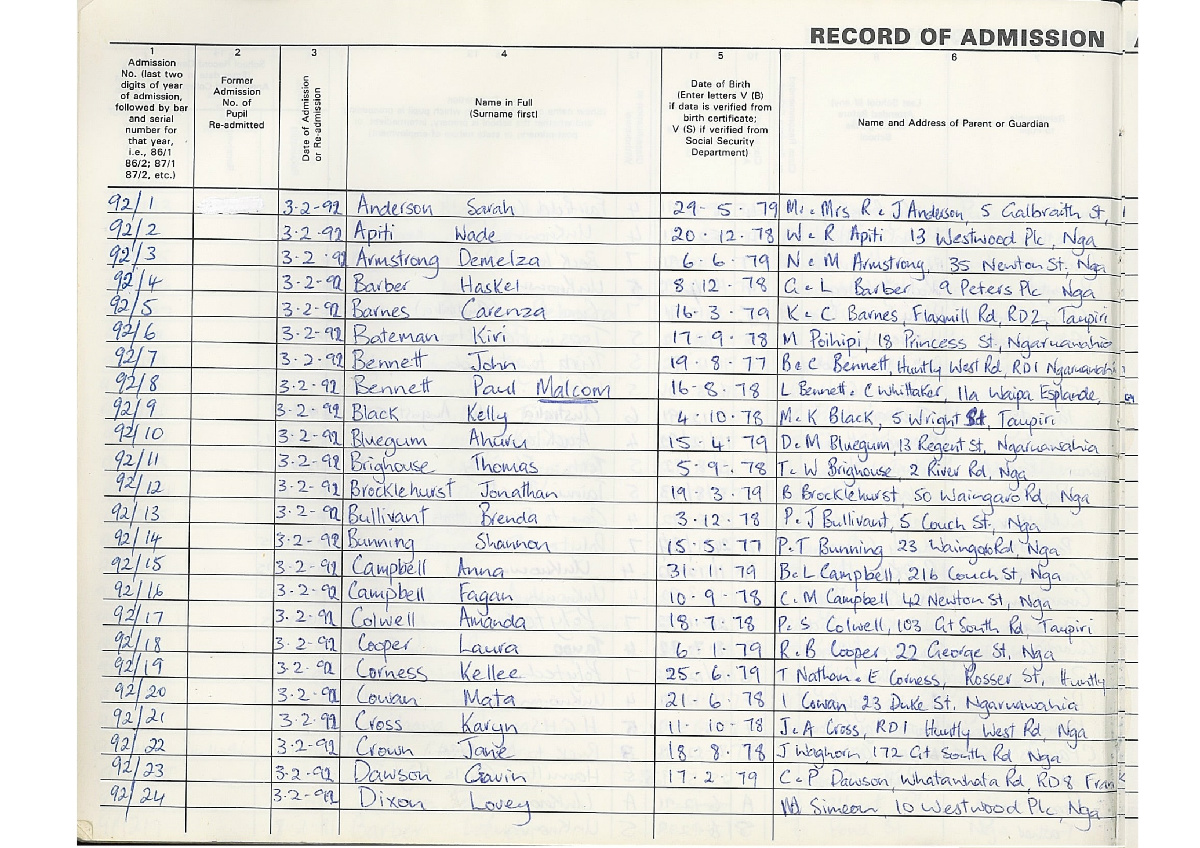 RECORD OF ADMISSION
1 2 3 4 5 6
Admission
No. (last two
digits of year
of admission,
followed by bar
and serial
number for
that year,
i.e., 86/1
86/2; 87/1
87/2, etc.)
Former
Admission
No. of
Pupil
Re-admitted
Date of Admission
or Re-admission
Name in Full
(Surname first)
Date of Birth
(Enter letters V (B)
if data is verified from
birth certificate;
V (S) if verified from
Social Security
Department)
Name and Address of Parent or Guardian
92/1 3-2-92 Anderson Sarah 29-5-79 Mr & Mrs R & J Anderson 5 Galbraith St,
92/2 3-2-92 Apiti Wade 20.12.78 W & R Apiti 13 Westwood Plc, Nga
92/3 3-2-92 Armstrong Demelza 6.6.79 N & M Armstrong, 35 Newton St, Nga
92/4 3-2-92 Barber Haskel 8.12.78 & L Barber 9 Peters Plc, Nga
92/5 3-2-92 Barnes Carenza 16-3-79 K & C Barnes, Flaxmill Rd, RD2, Taupiri
92/6 3-2-92 Bateman Kiri 17-9-78 M Poihipi, 18 Princess St, Ngaruawahia
92/7 3-2-92 Bennett John 19-8-77 B & C Bennett, Huntly West Rd, RD1 Ngaruawahia
92/8 3-2-92 Bennett Paul Malcom 16-8-78 L Bennett & C Whittaker, 11a Waipa Esplande,
92/9 3-2-92 Black Kelly 4.10.78 M & K Black, 5 Wright St, Taupiri
92/10 3-2-92 Bluegum Ahuru 15.4.79 D & M Bluegum, 13 Regent St, Ngaruawahia
92/11 3-2-92 Brighouse Thomas 5-9-78 T & W Brighouse, 2 River Rd, Nga
92/12 3-2-92 Brocklehurst Jonathan 19.3.79 B Brocklehurst, 50 Waingaro Rd, Nga
92/13 3-2-92 Bullivant Brenda 3.12.78 P & J Bullivant, 5 Couch St, Nga
92/14 3-2-92 Bunning Shannon 15.5.77 P & T Bunning 23 Waingaro Rd, Nga
92/15 3-2-92 Campbell Anna 31.1.79 B & L Campbell, 21b Couch St, Nga
92/16 3-2-92 Campbell Fagan 10-9-78 C & M Campbell 42 Newton St, Nga
92/17 3-2-92 Colwell Amanda 18.7.78 P & S Colwell, 103 Gt South Rd, Taupiri
92/18 3-2-92 Cooper Laura 6.1.79 R & B Cooper, 22 George St, Nga
92/19 3-2-92 Corness Kellee 25-6.79 T Nathan & E Corness, Rosser St, Huntly
92/20 3-2-92 Cowan Mata 21-6-78 I Cowan 23 Duke St, Ngaruawahia
92/21 3-2-92 Cross Karyn 11.10-78 J & A Cross, RD1 Huntly West Rd, Nga
92/22 3-2-92 Crown Janie 18-8.78 J Waghorn 172 Gt South Rd Nga
92/23 3-2-92 Dawson Gavin 17-2.79 C & P Dawson, Whatawhata Rd, RD8 Fran
92/24 3-2-92 Dixon Lovey Simeon, 10 Westwood Plc, Nga